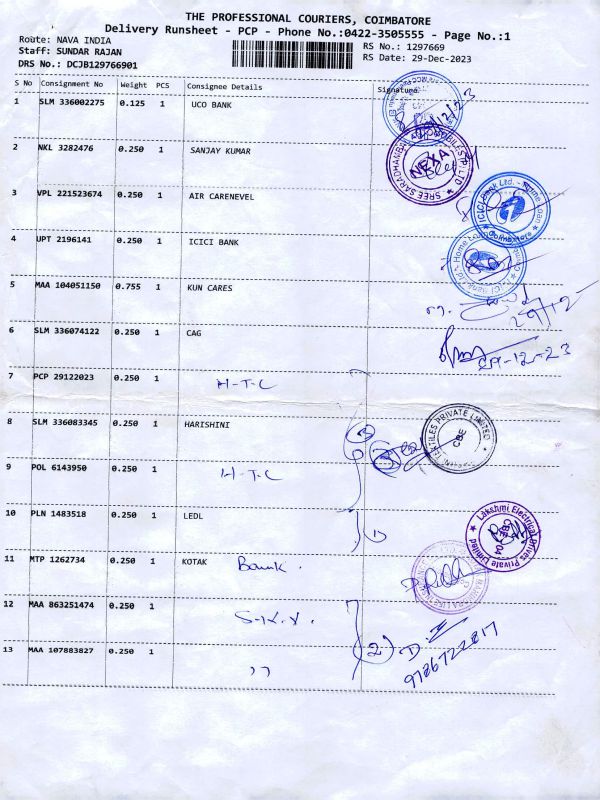 THE PROFESSIONAL COURIERS, COIMBATORE
Delivery Runsheet - PCP - Phone No.:0422-3505555 - Page No.:1
Route: NAVA INDIA
RS No.: 1297669
Staff: SUNDAR RAJAN
RS Date: 29-Dec-2023
DRS No.: DCJB129766901
S No Consignment No Weight PCS Consignee Details Signature
1 SLM 336002275 0.125 1 UCO BANK
2 NKL 3282476 0.250 1 SANJAY KUMAR
NEXA
3 VPL 221523674 0.250 1 AIR CARENEVEL
4 UPT 2196141 0.250 1 ICICI BANK
5 MAA 104051150 0.755 1 KUN CARES
29/12
6 SLM 336074122 0.250 1 CAG
7 PCP 29122023 0.250 1 H-T-C
8 SLM 336083345 0.250 1 HARISHINI
CBE
9 POL 6143950 0.250 1 H-T-C
10 PLN 1483518 0.250 1 LEDL
Lakshmi Electrical Drives Private Limited
11 MTP 1262734 0.250 1 KOTAK Bank.
12 MAA 863251474 0.250 1 S-K.V.
(2)
13 MAA 107883827 0.250 1 ,,
9786722817